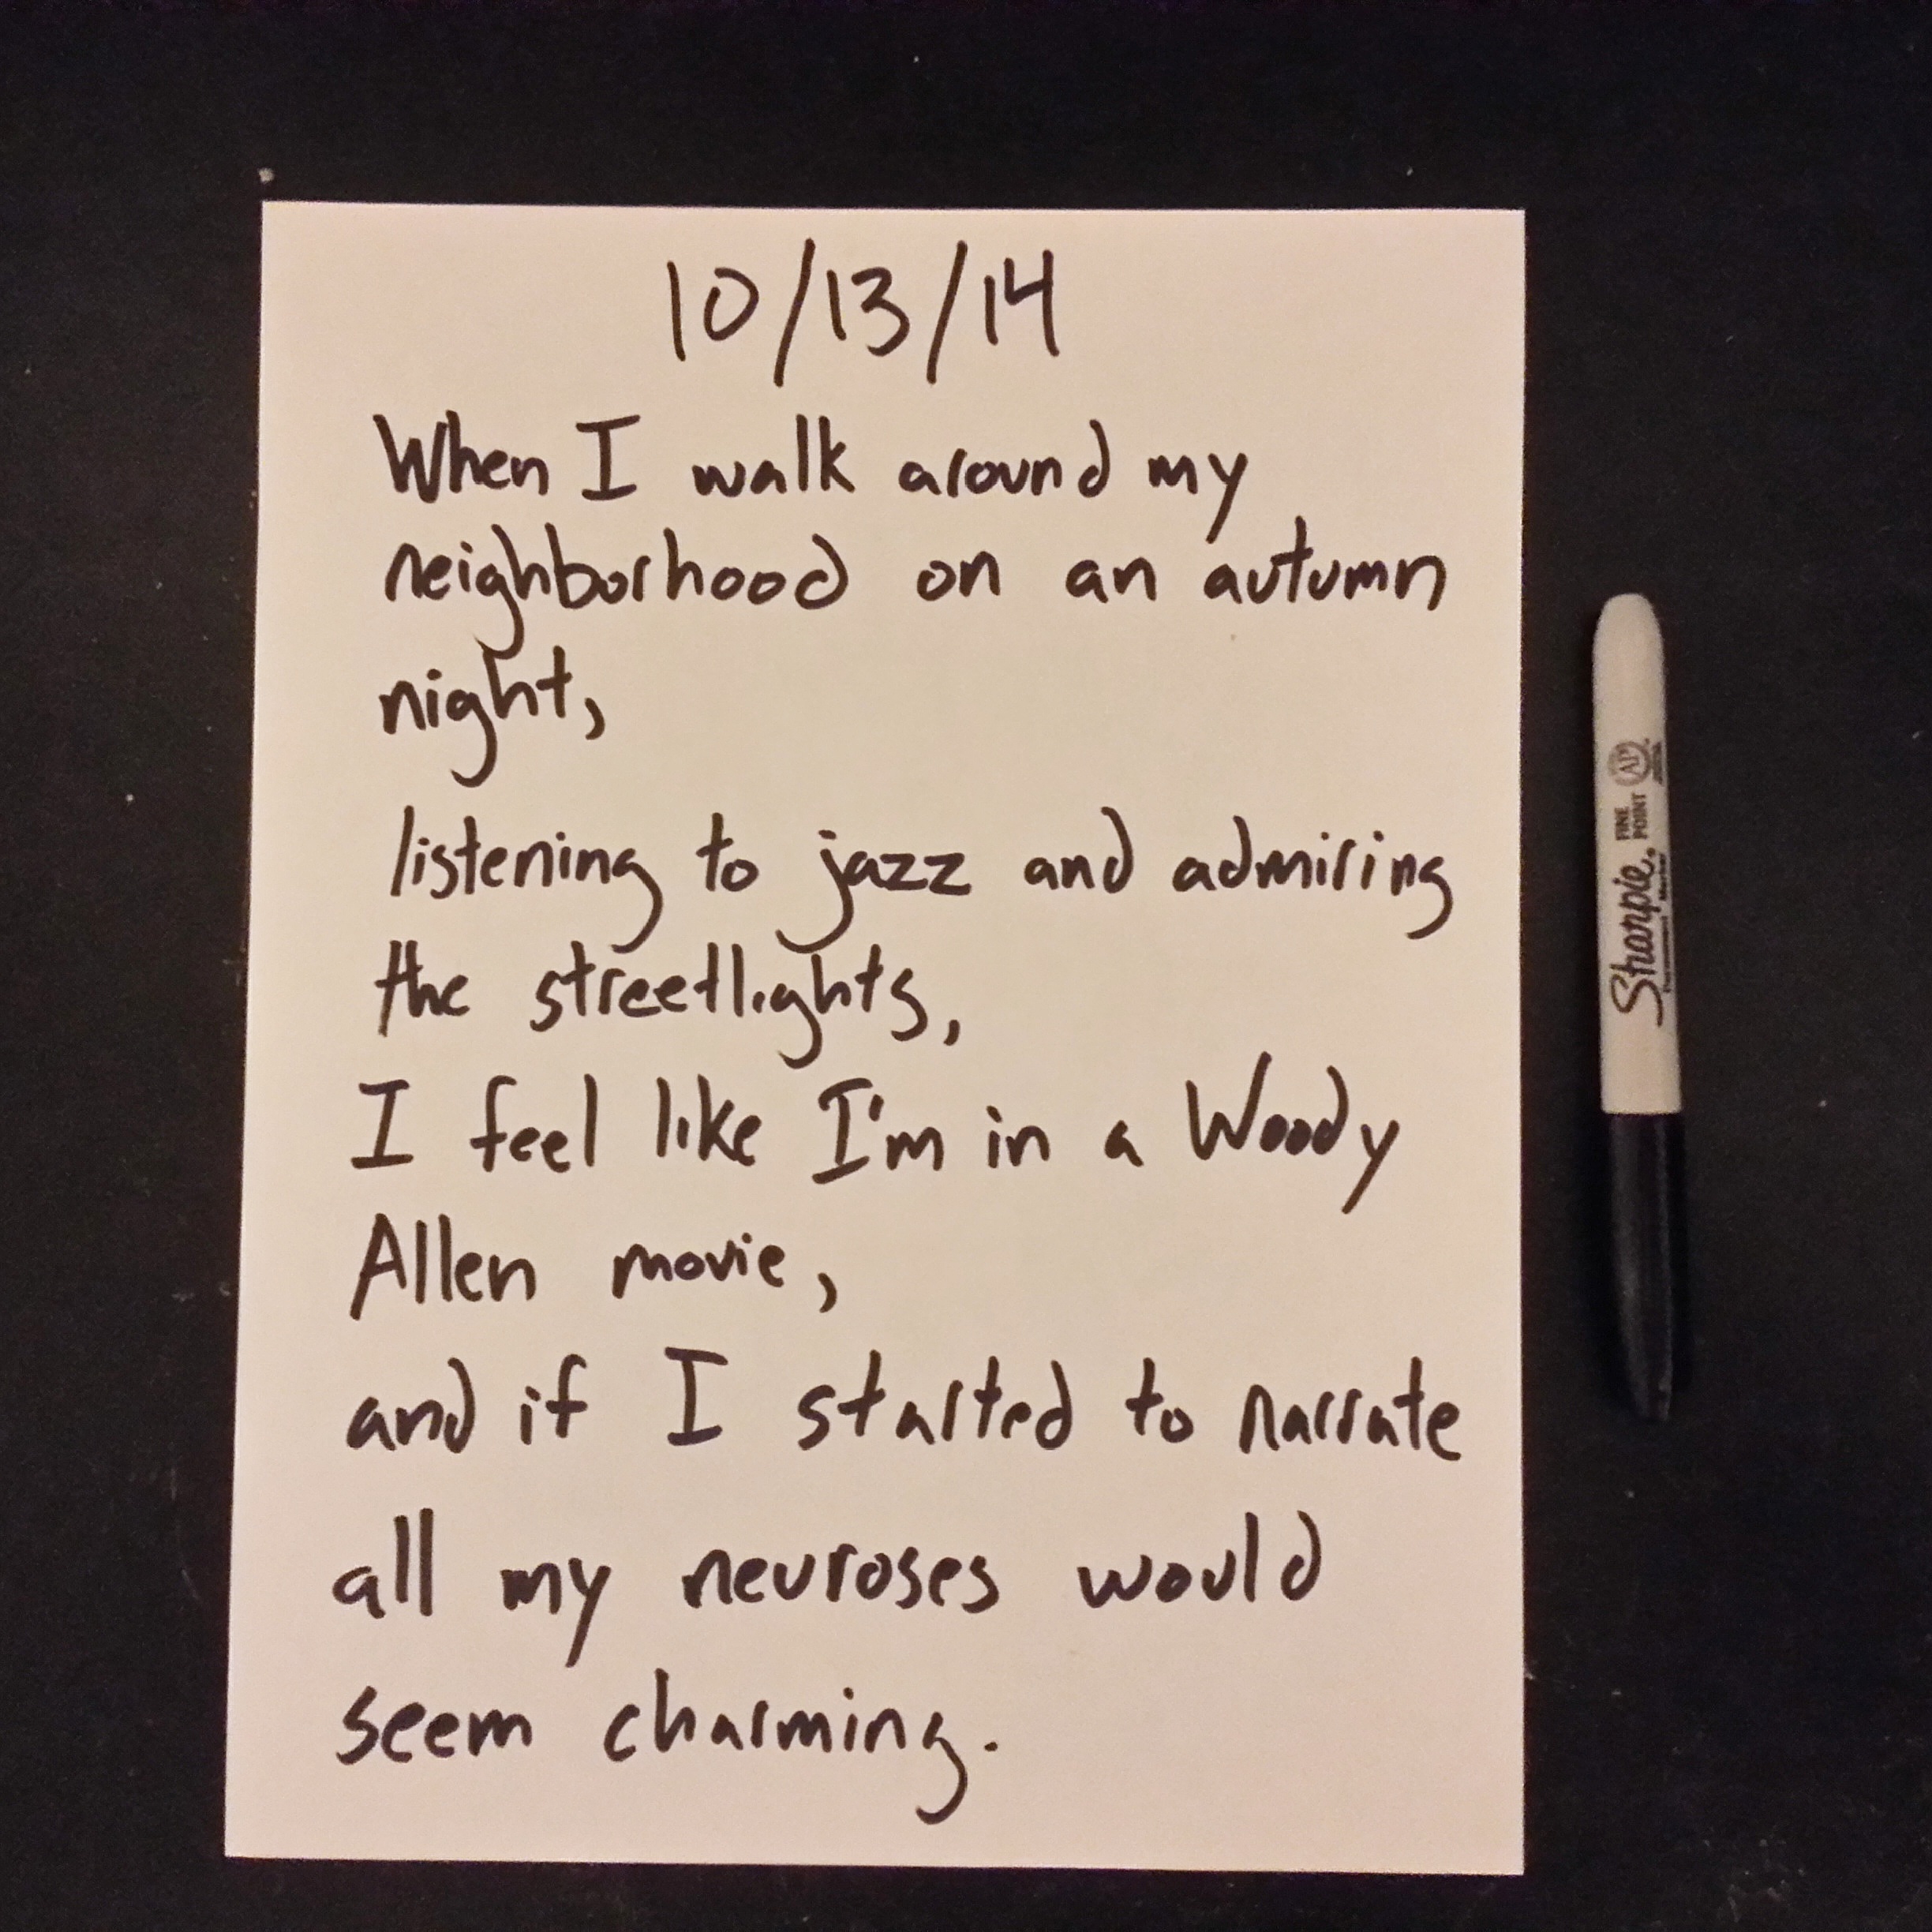 10/13/14
When I walk around my
neighborhood on an autumn
night,
listening to jazz and admiring
the streetlights,
I feel like I'm in a Woody
Allen movie,
and if I started to narrate
all my neuroses would
seem charming.
Sharpie.
FINE
POINT
Permanent Marker
AP